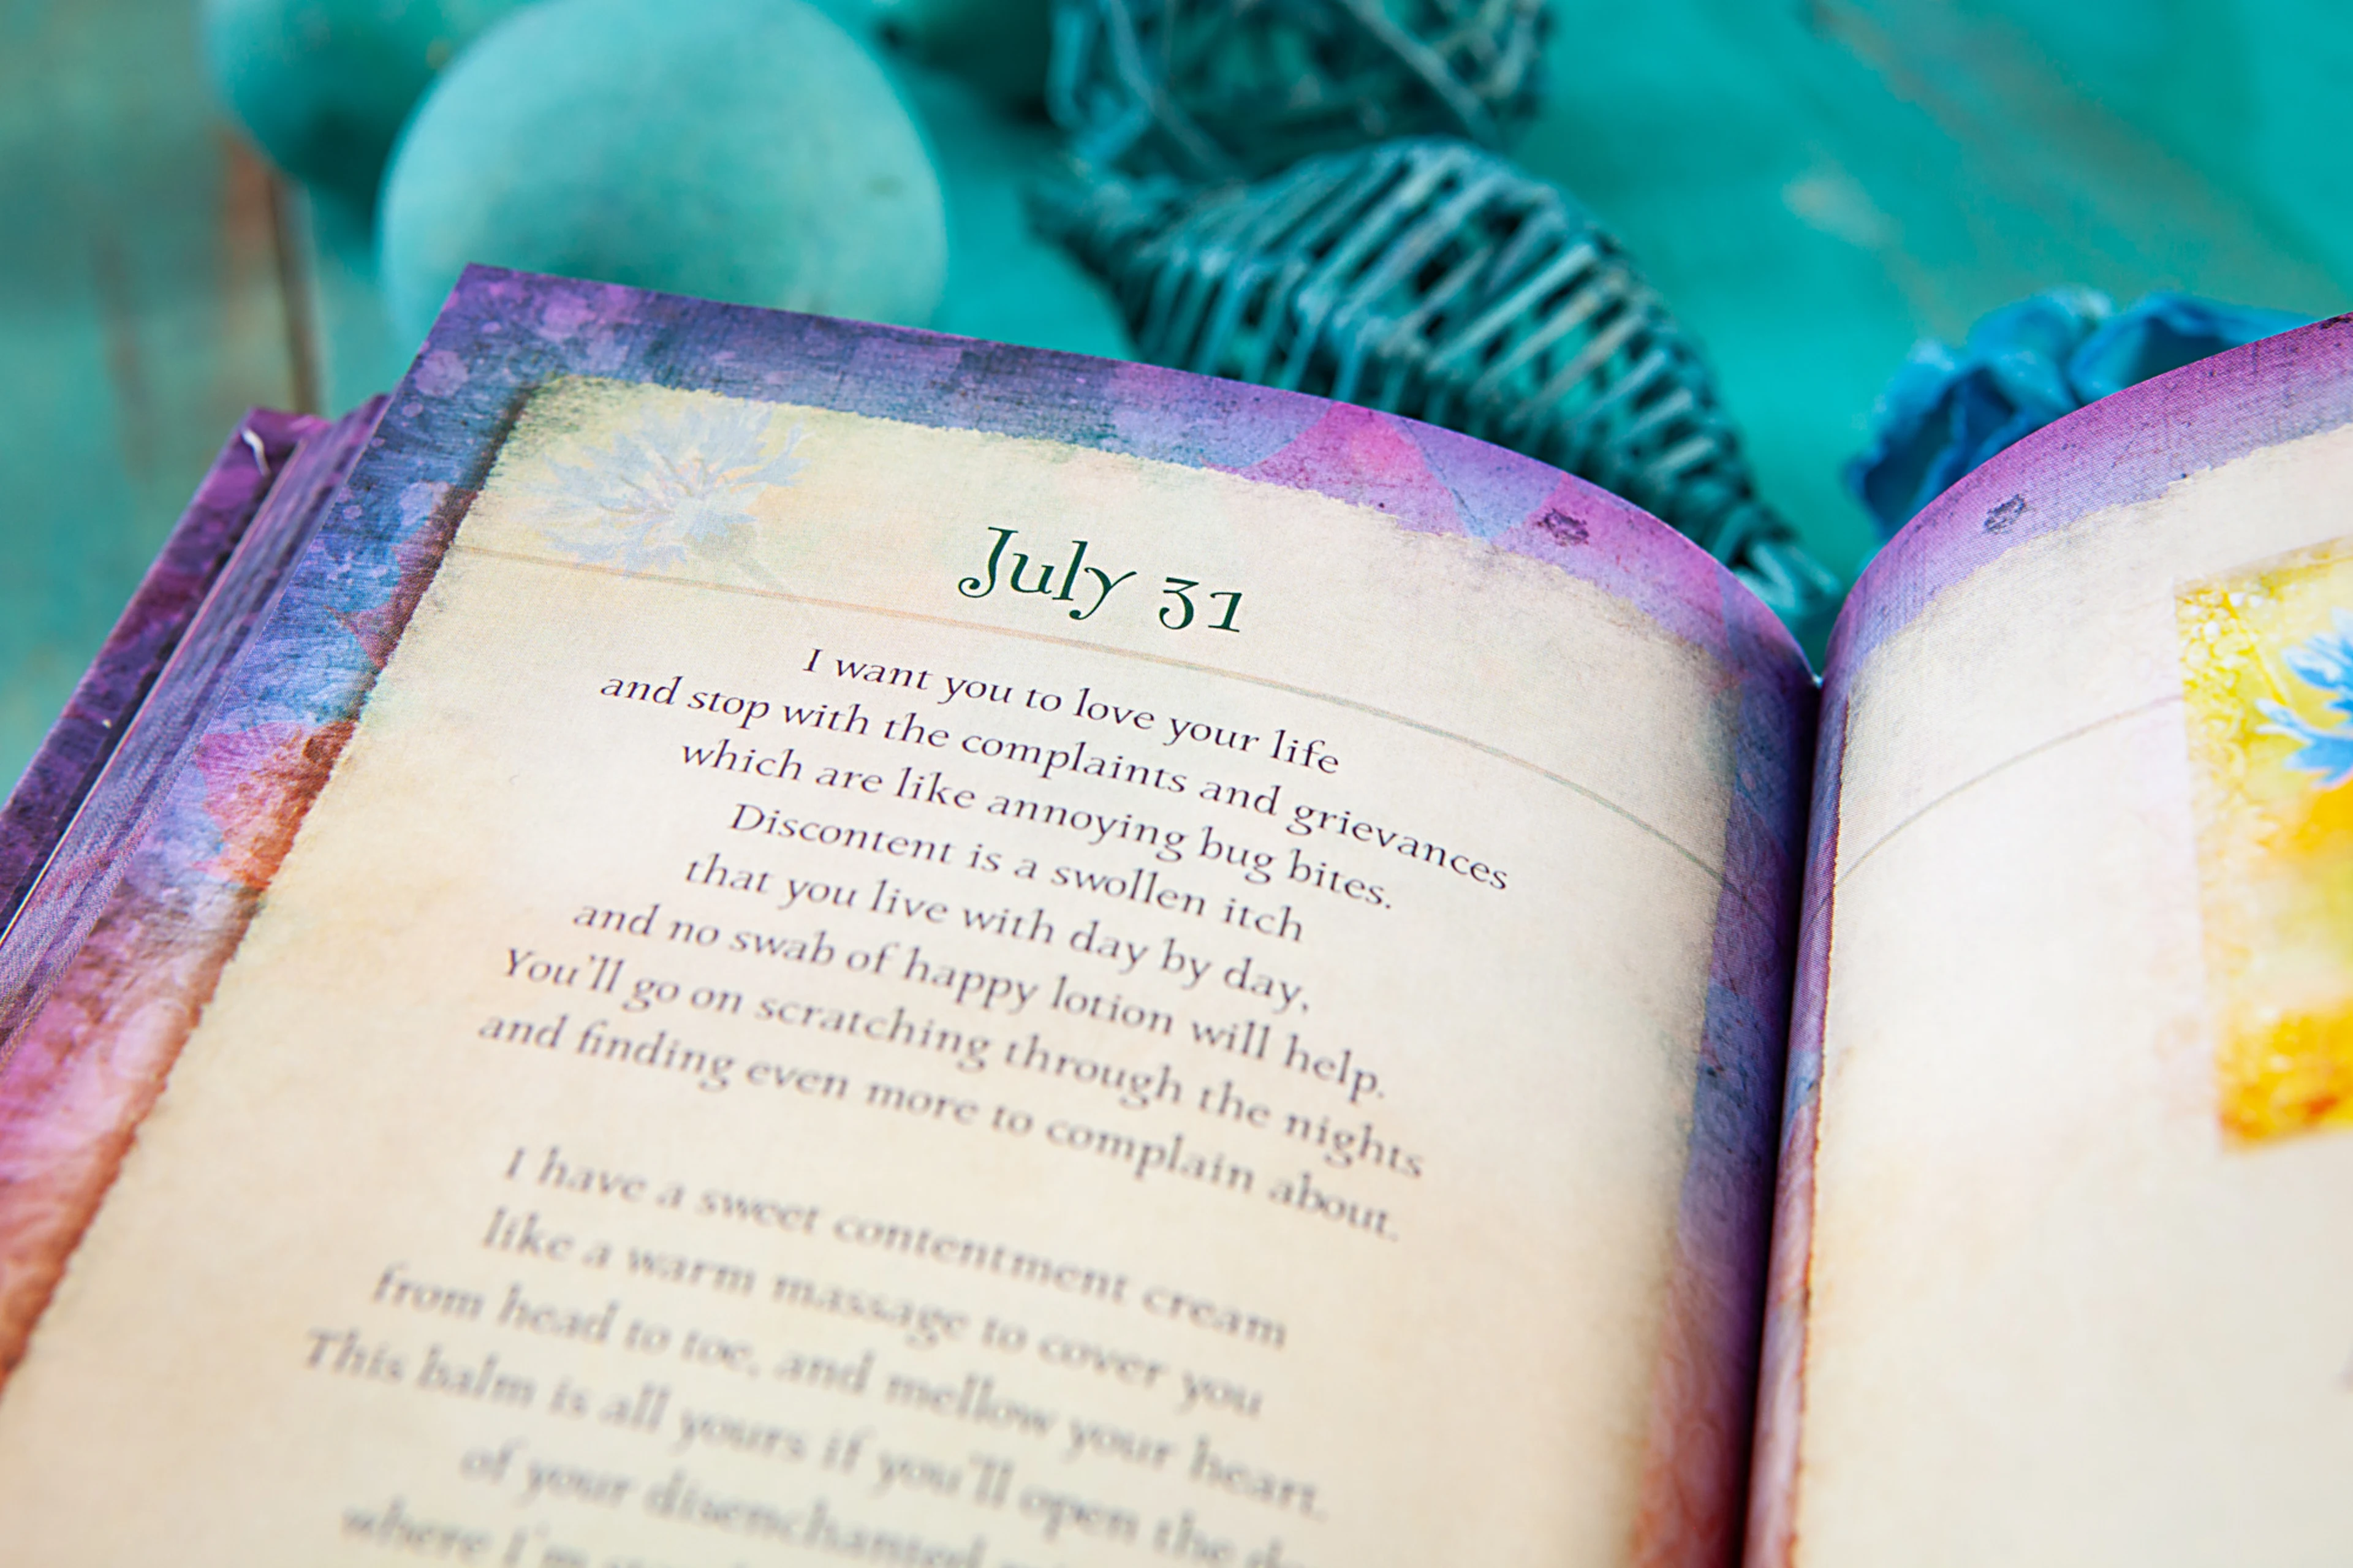 July 31
I want you to love your life
and stop with the complaints and grievances
which are like annoying bug bites.
Discontent is a swollen itch
that you live with day by day,
and no swab of happy lotion will help.
You'll go on scratching through the nights
and finding even more to complain about.
I have a sweet contentment cream
like a warm massage to cover you
from head to toe, and mellow your heart.
This balm is all yours if you'll open the
of your disenchanted
where I'm